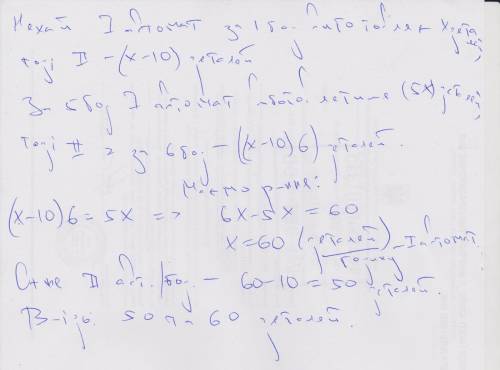 Нехай I автомат за 1 год виготовляє x деталей,
тоді II – (x-10) деталей
За 5 год I автомат виготовлятиме (5x) деталей
тоді II за 6 год – ((x-10)6) деталей.
Маємо рівння:
(x-10)6 = 5x => 6x-5x = 60
x=60 (деталей/годину) – I автомат.
Отже II авт. /год – 60-10 = 50 деталей.
В-ідь: 50 та 60 деталей.